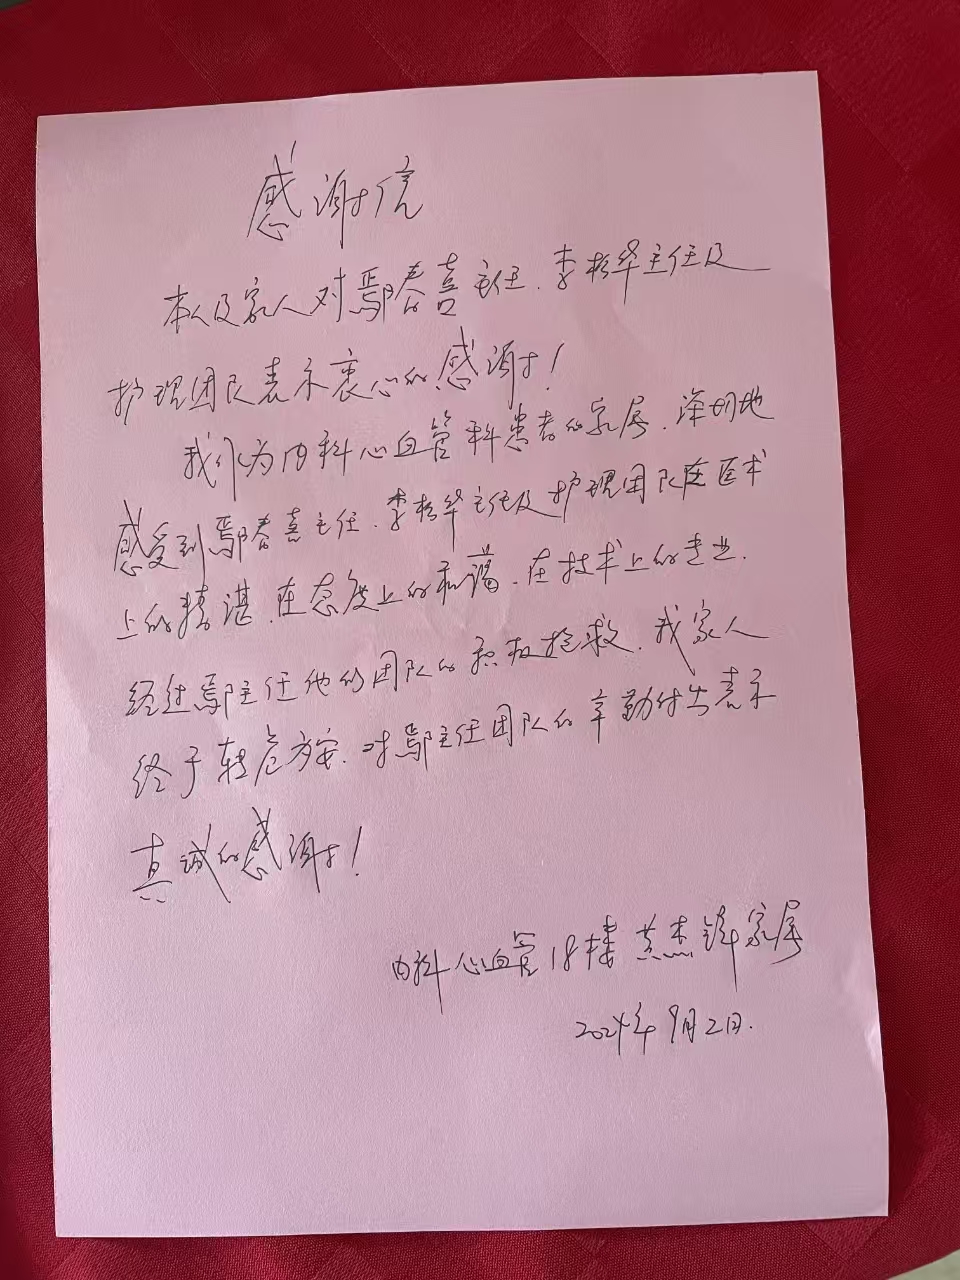 感谢信
本人及家人对鄢春喜主任、李松华主任及
护理团队表示衷心的感谢！
我作为内科心血管科患者的家属、深切地
感受到鄢春喜主任、李松华主任及护理团队在医术
上的精湛、在态度上的和蔼、在技术上的专业、
经过鄢主任他的团队的积极抢救、我家人
终于转危为安、对鄢主任团队的辛勤付出表示
真诚的感谢！
内科心血管18楼 黄杰锋家属
2024年9月2日.